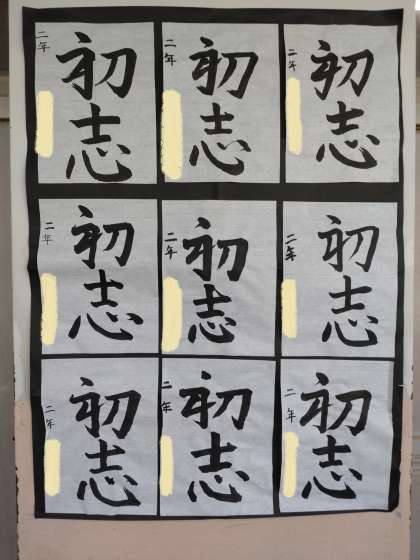 二年
初志
二年
初志
二年
初志
二年
初志
二年
初志
二年
初志
二年
初志
二年
初志
二年
初志